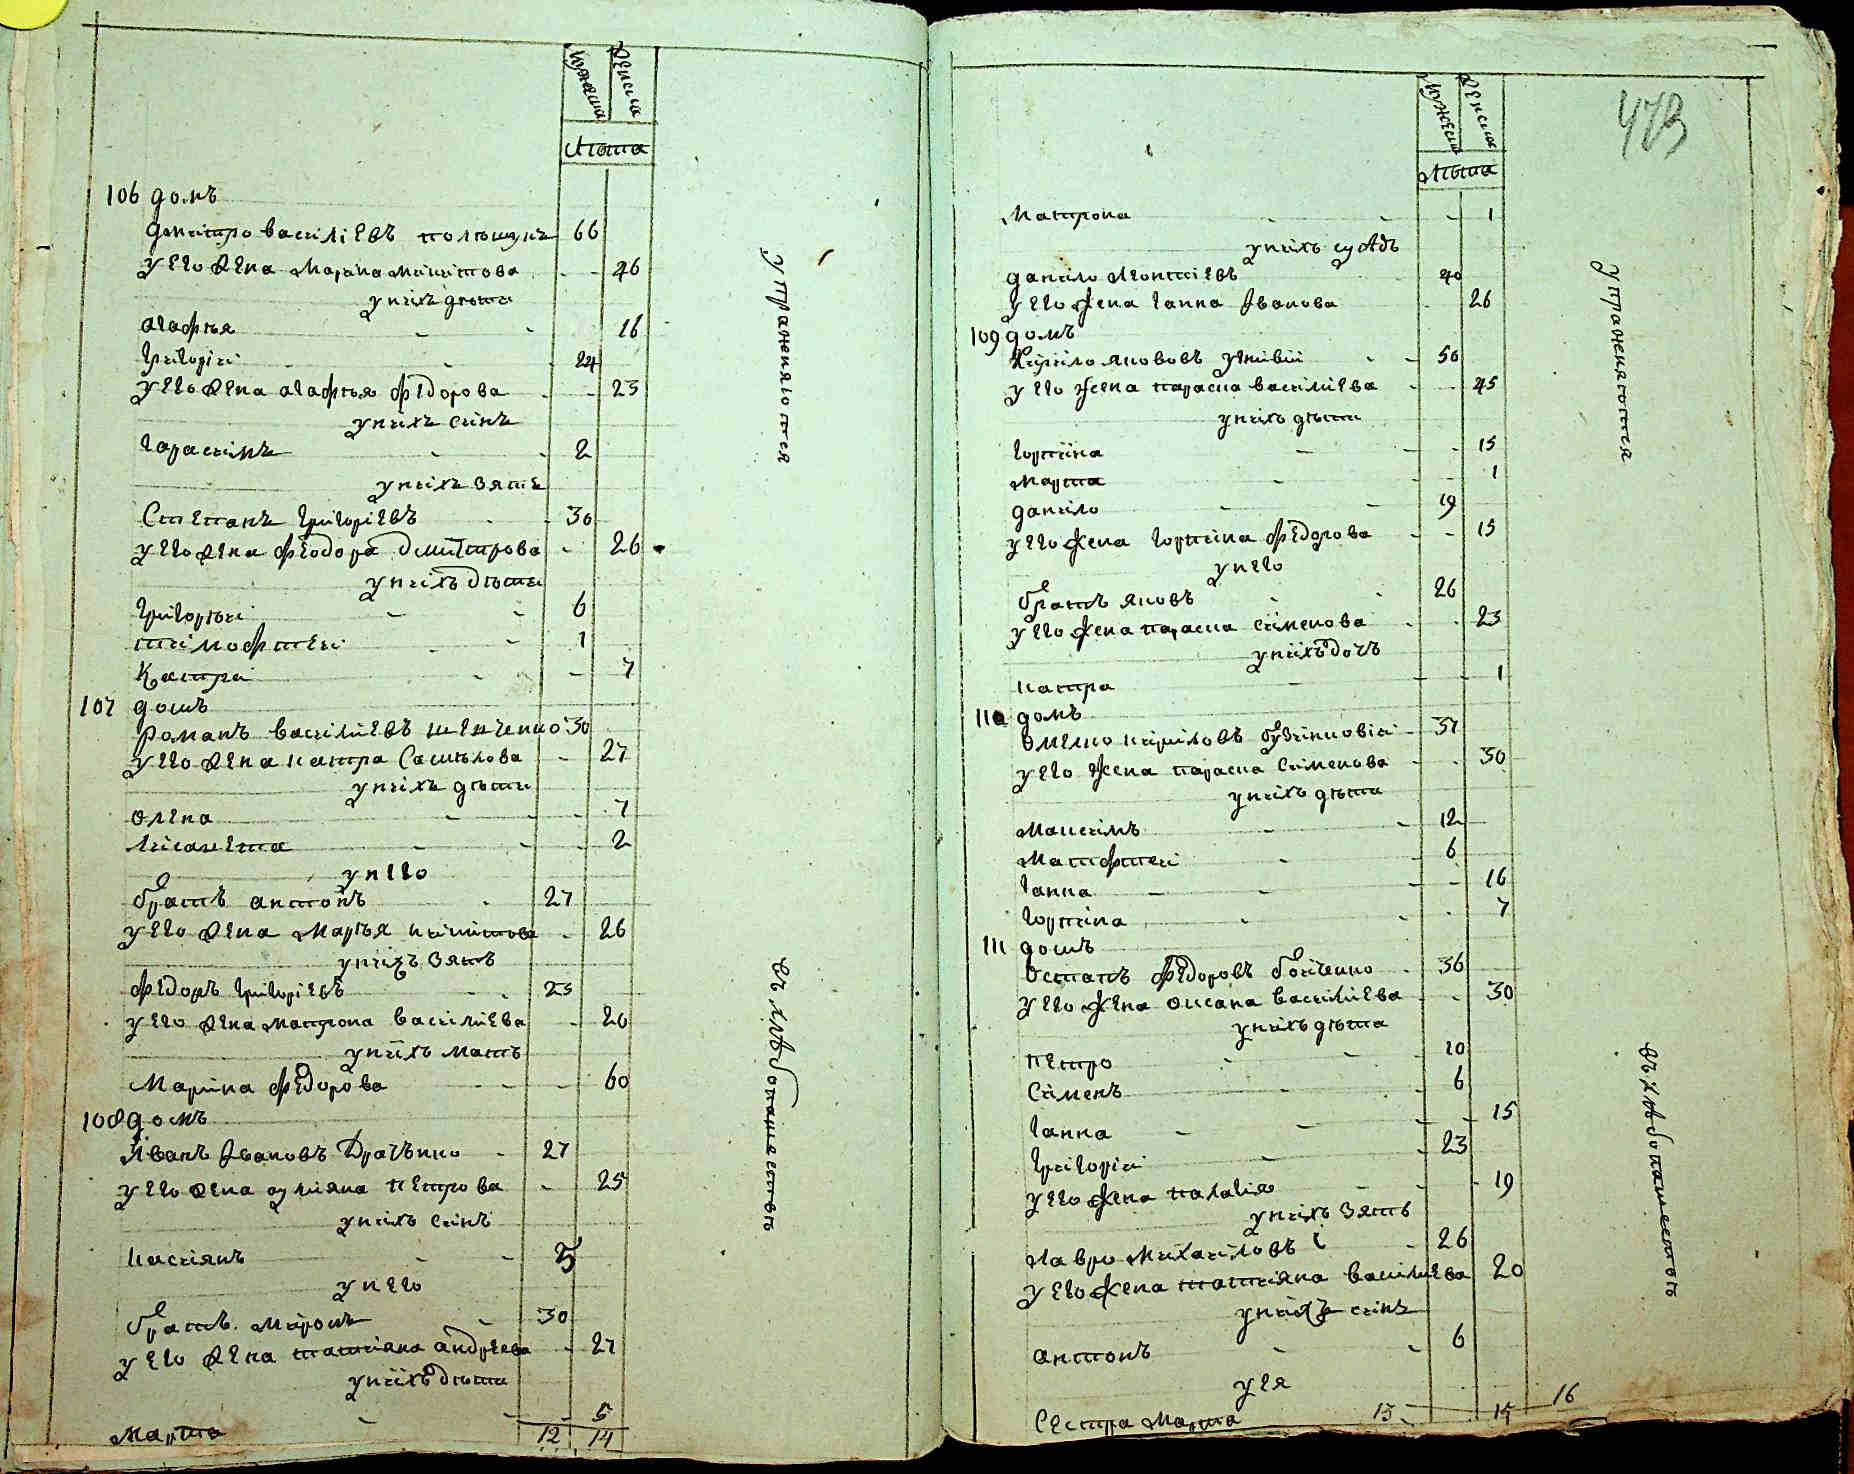 мужеска женска
Лѣта
106 домъ
Дмитро василіевъ полющукъ 66
У его жена Марина микитова 46
у нихъ дѣти
агафья 16
Григорій 24
У его жена агафья федорова 23
у нихъ синъ
Гарасимъ 2
у нихъ зять
Степанъ Григоріевъ 30
у его жена феодора дмитрова 26
у нихъ дѣти
Григорій 6
тимофтей 1
Катря 7
107 домъ
Романъ василіевъ шевченко 30
у его жена катра Самълова 27
у нихъ дѣти
олена 7
лисавета 2
у него
братъ антонъ 27
у его жена Марья никитова 26
у нихъ зять
федоръ Григоріевъ 25
у его жена матрона василіева 20
у нихъ мать
Марина федорова 60
108 домъ
Иванъ Ивановъ Драгънко 27
у его жена улияна петрова 25
у нихъ синъ
касиянъ 5
у него
братъ миронъ 30
у его жена татияна андреева 27
у нихъ дѣти
Марта 5
12 14
упраняются
въ хлѣбопашествѣ
473
мужеска женска
Лѣта
Матрона 1
у нихъ сусѣдъ
данило Леонтіевъ 40
у его жена Ганна Иванова 26
109 домъ
Кирило яковъ 50
у его жена параска василіева 45
у нихъ дѣти
Горпина 15
Марта 1
данило 19
у его жена Горпина федорова 15
у него
братъ яковъ 26
у его жена параска сименова 23
у нихъ дочъ
катра 1
110 домъ
Омелко кириловъ 37
у его жена параска сименова 30
у нихъ дѣти
Максимъ 12
Матфтей 6
Ганна 16
Горпина 7
111 домъ
Остапъ федоровъ бойченко 36
у его жена оксана василіева 30
у нихъ дѣти
петро 10
Сименъ 6
Ганна 15
Григорій 23
у его жена палагія 19
у нихъ зять
Лавро михаиловъ 26
у его жена татияна василіева 20
у нихъ синъ
антонъ 6
у ея
Сестра Марта 16
13 14
упраняются
въ хлѣбопашествѣ